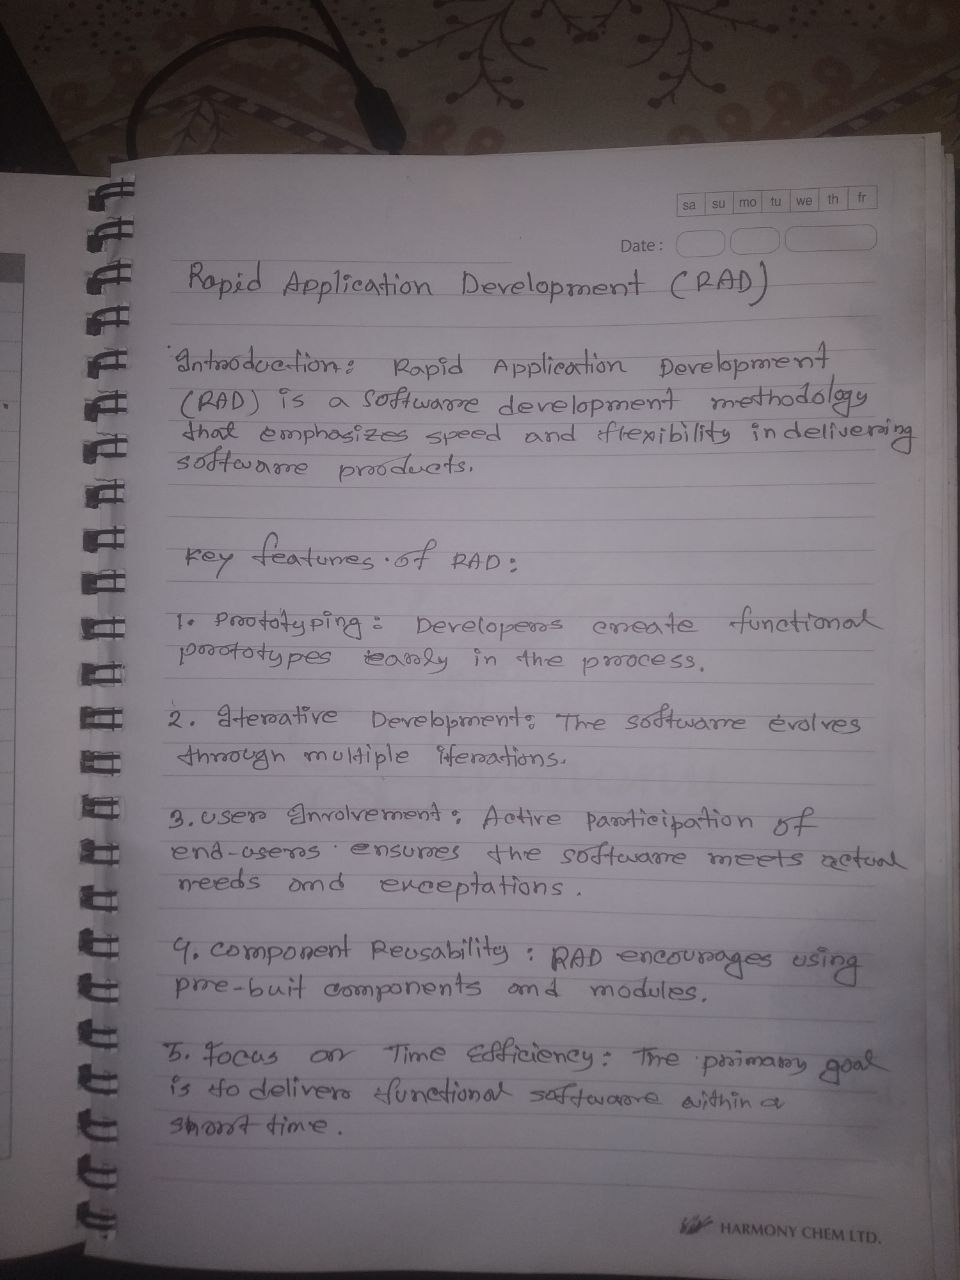 sa su mo tu we th fr
Date:
Rapid Application Development (RAD)
Introduction: Rapid Application Development
(RAD) is a software development methodology
that emphasizes speed and flexibility in delivering
software products.
Key features of RAD:
1. Prototyping: Developers create functional
prototypes early in the process.
2. Iterative Development: The software evolves
through multiple iterations.
3. User Involvement: Active participation of
end-users ensures the software meets actual
needs and exceptations.
4. Component Reusability: RAD encourages using
pre-buit components and modules.
5. Focus on Time Efficiency: The primary goal
is to deliver functional software within a
short time.
HARMONY CHEM LTD.